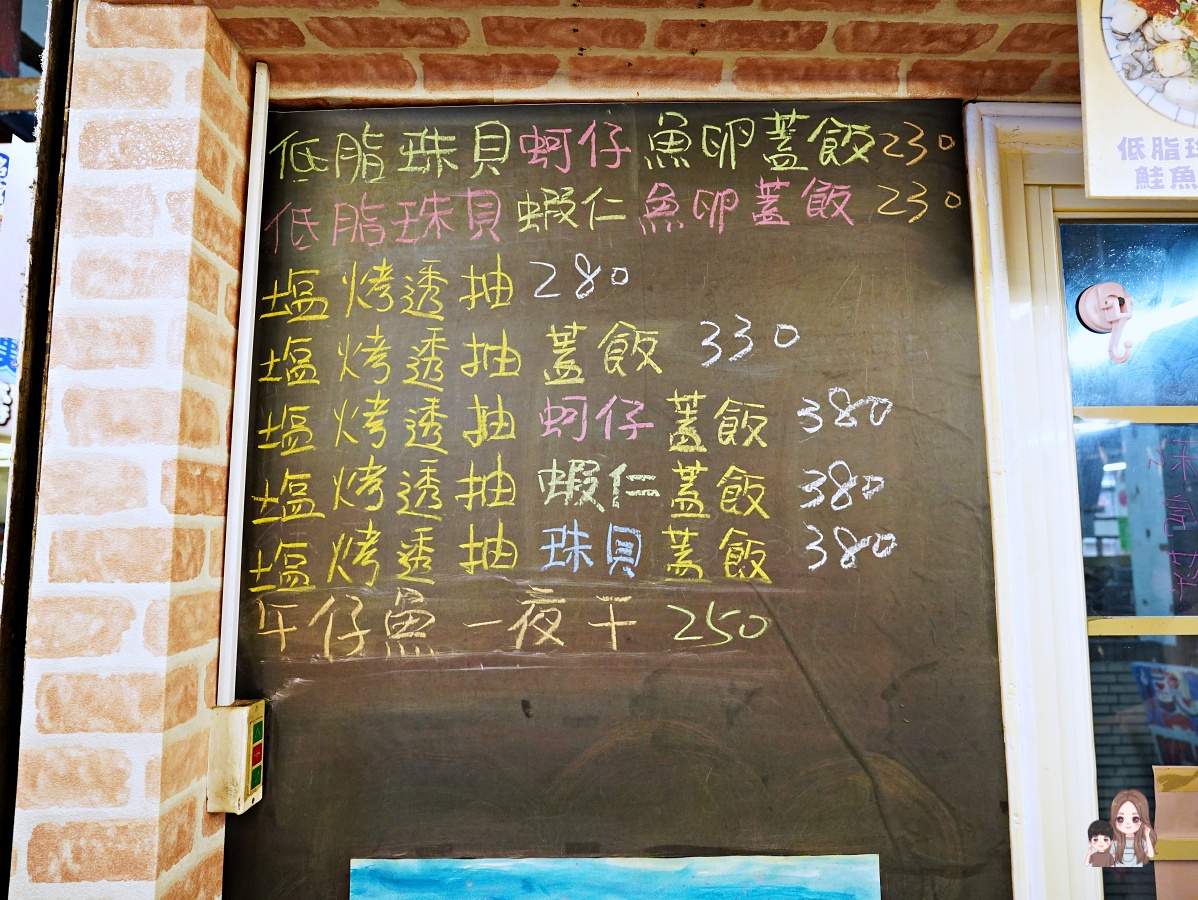 低脂珠貝蚵仔魚卵蓋飯230
低脂珠貝蝦仁魚卵蓋飯 230
塩烤透抽 280
塩烤透抽蓋飯 330
塩烤透抽蚵仔蓋飯 380
塩烤透抽蝦仁蓋飯 380
塩烤透抽珠貝蓋飯 380
午仔魚一夜干 250
低脂珠
鮭魚